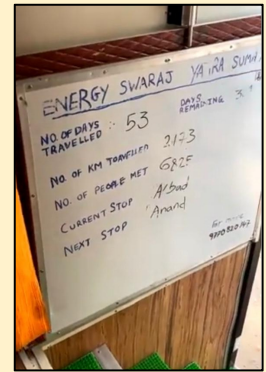 ENERGY SWARAJ YATRA SUMM
NO. OF DAYS TRAVELLED :- 53 DAYS REMAINING 3
NO. OF KM TRAVELLED 2173
NO. OF PEOPLE MET 6825
CURRENT STOP A'bad
NEXT STOP Anand
For more